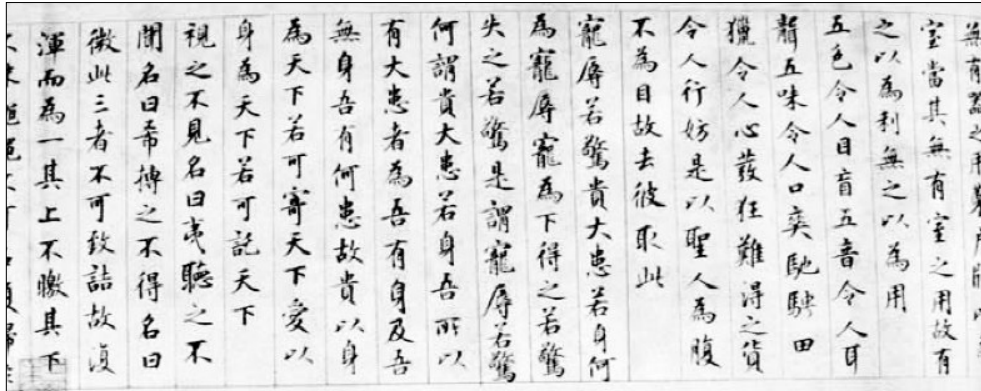 無有器之用鑿戶牖以
室當其無有室之用故有
之以為利無之以為用
五色令人目盲五音令人耳
聾五味令人口爽馳騁田
獵令人心發狂難得之貨
令人行妨是以聖人為腹
不為目故去彼取此
寵辱若驚貴大患若身何
為寵辱寵為下得之若驚
失之若驚是謂寵辱若驚
何謂貴大患若身吾所以
有大患者為吾有身及吾
無身吾有何患故貴以身
為天下若可寄天下愛以
身為天下若可託天下
視之不見名曰夷聽之不
聞名曰希搏之不得名曰
微此三者不可致詰故復
渾而為一其上不曒其下